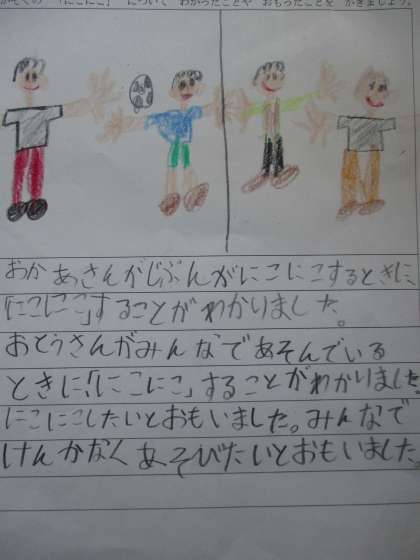 かぞくの 「にこにこ」 について わかったことや おもったことを かきましょう。
おかあさんがじぶんがにこにこするときに、
「にこにこ」することがわかりました。
おとうさんがみんなであそんでいる
ときに、「にこにこ」することがわかりました。
にこにこしたいとおもいました。みんなで
けんかなくあそびたいとおもいました。